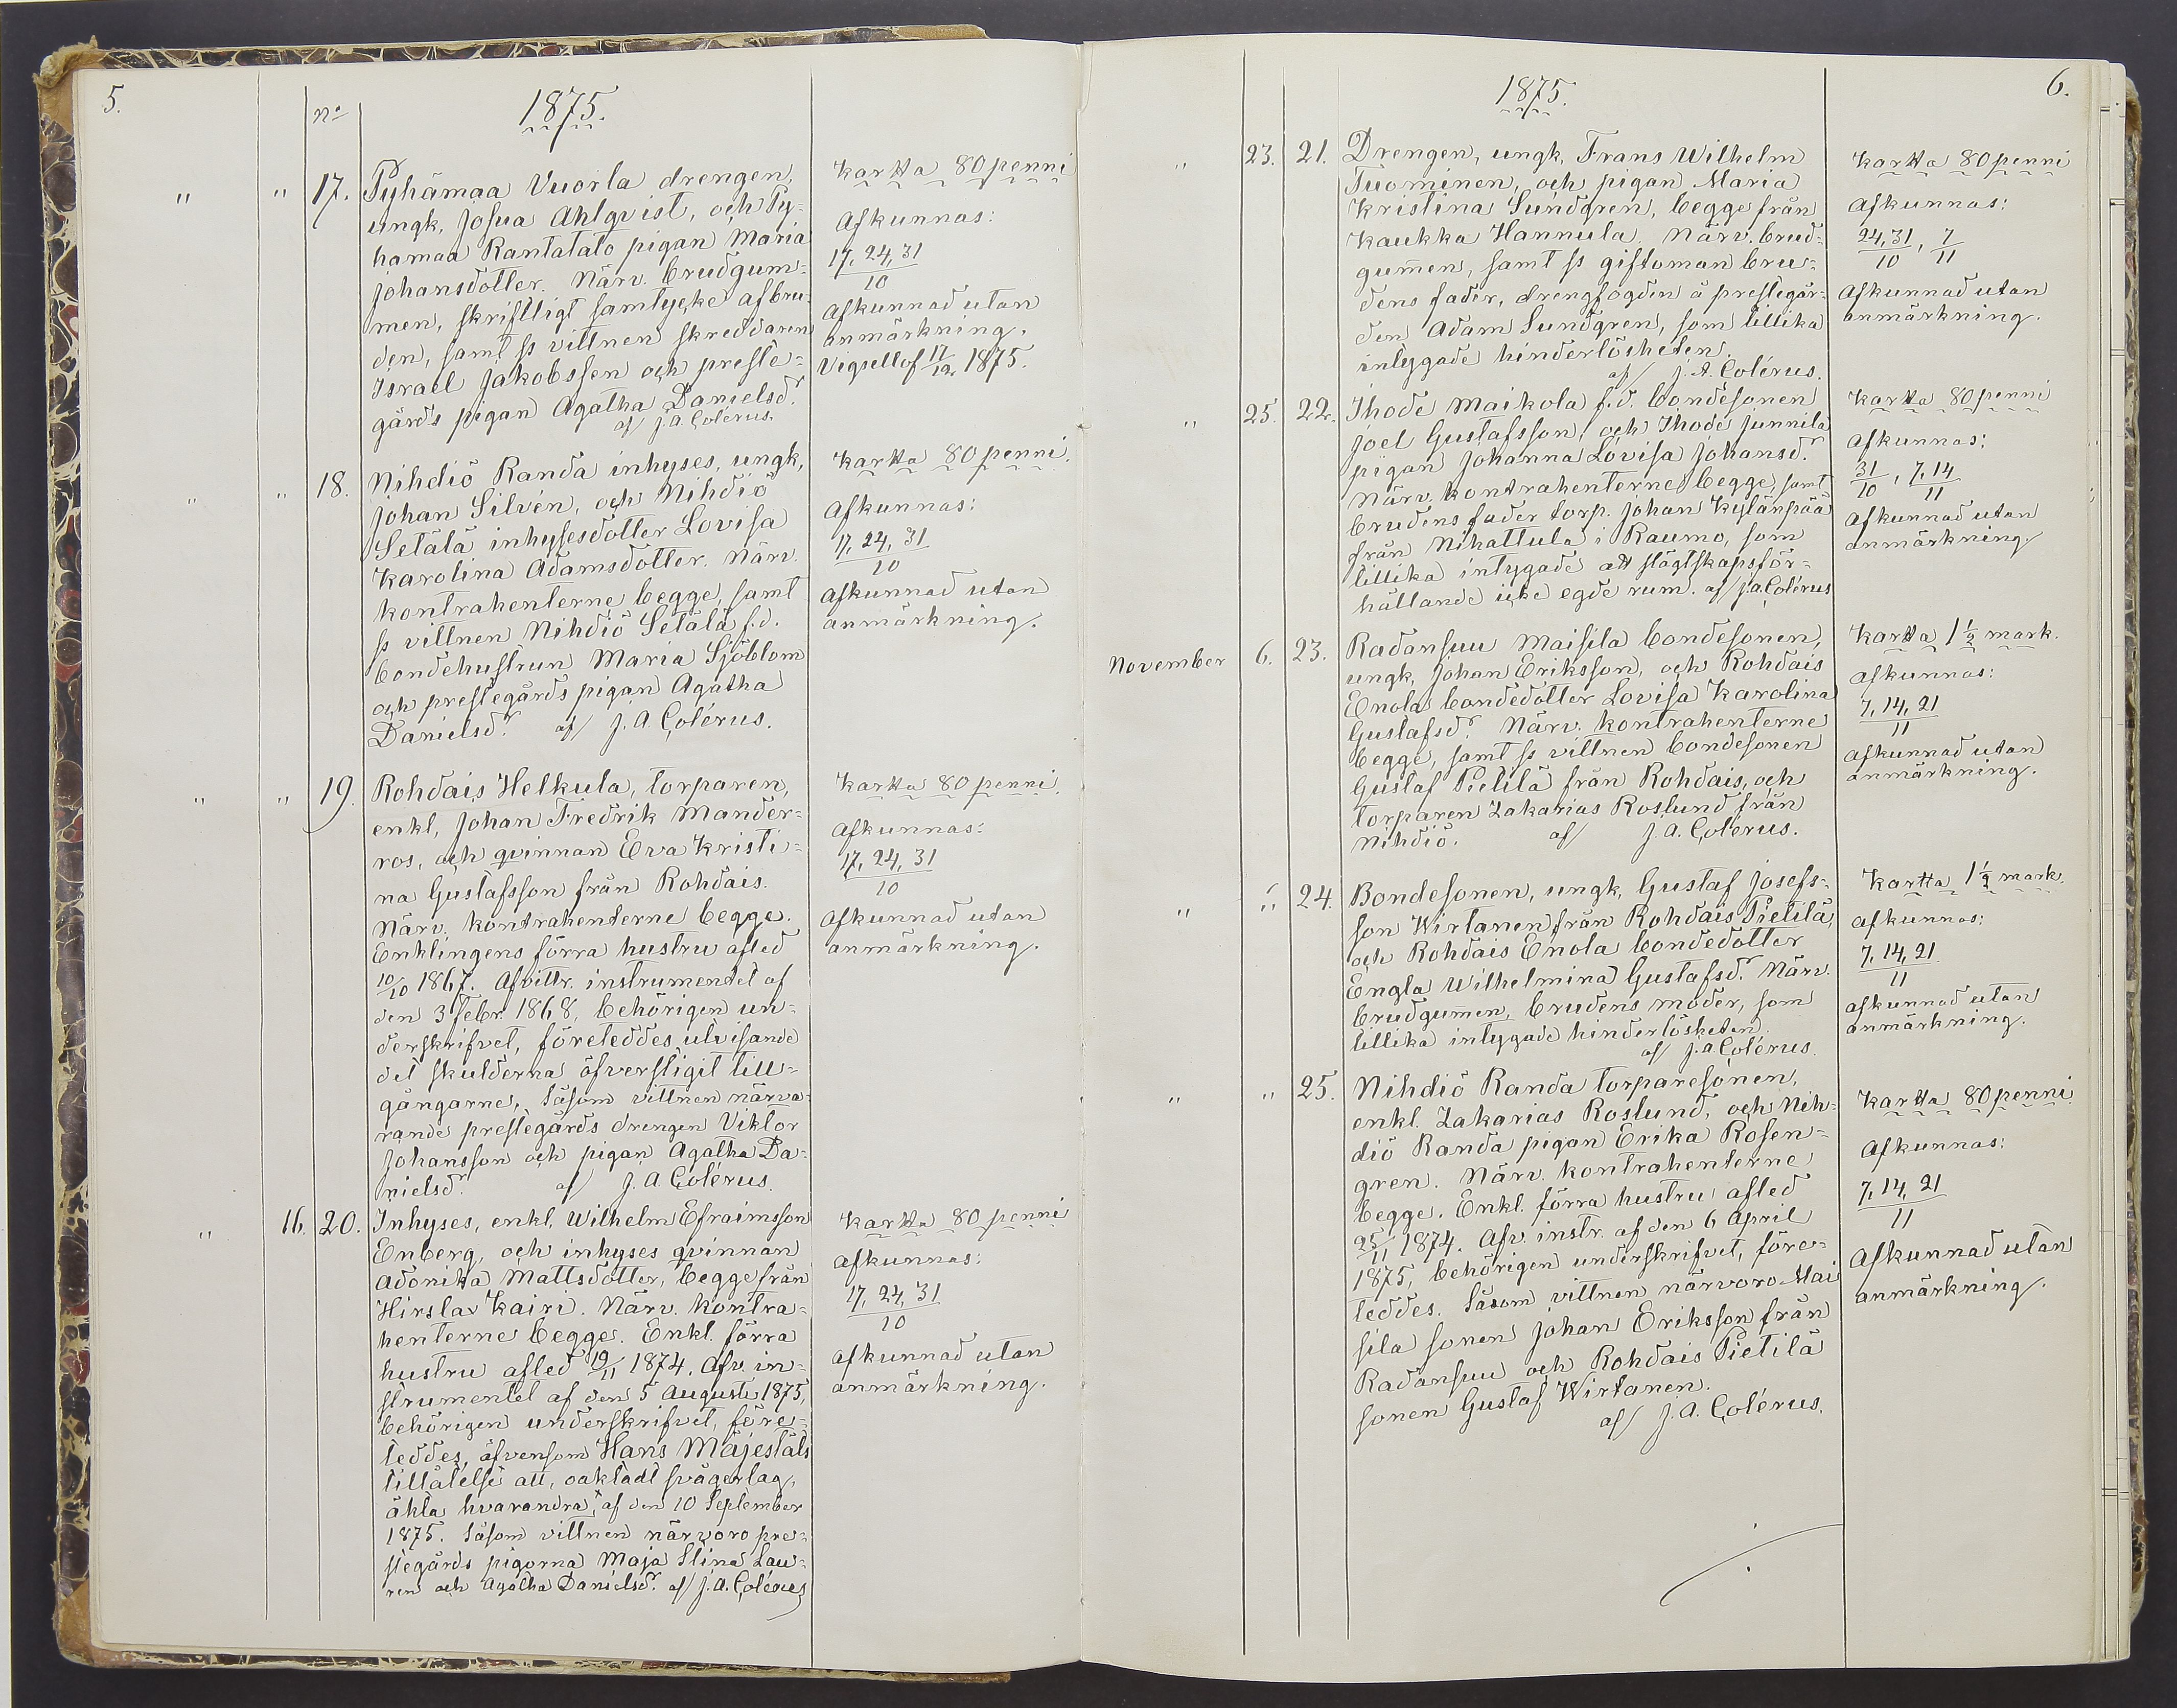 5.
nº
1875.
" " 17. Pyhämaa Vuorla drengen,
ungk, Josua Ahlqvist, och Py-
hamaa Rantatalo pigan Maria
Johansdotter. Närv. brudgum-
men, skriftligt samtycke af bru-
den, samt ss vittnen skreddaren
Israel Jakobsson och preste-
gårds pigan Agatha Danielsd.r
af/ J.A. Colérus.
Kartta 80 penni
Afkunnas:
17, 24, 31
10
Afkunnad utan
anmärkning.
Vigsellof 17/12 1875.
" " 18. Nihdiö Randa inhyses, ungk,
Johan Silvén, och Nihdiö
Setälä inhysesdotter Lovisa
Karolina Adamsdotter. Närv.
kontrahenterne begge, samt
ss vittnen Nihdiö Setälä f.d.
bondehustrun Maria Sjöblom
och prestegårds pigan Agatha
Danielsd.r af/ J.A. Colérus.
Kartta 80 penni.
Afkunnas:
17, 24, 31
10
Afkunnad utan
anmärkning.
" " 19. Rohdais Helkula, torparen,
enkl, Johan Fredrik Mander-
ros, och qvinnan Eva Kristi-
na Gustafsson från Rohdais.
Närv. kontrahenterne begge.
Enklingens förra hustru afled
10/10 1867. Afvittr. instrumentet af
den 3 Febr. 1868, behörigen un-
derskrifvet, företeddes utvisande
det skulderna öfverstigit till-
gångarne. Såsom vittnen närva-
rande prestegårds drengen Viktor
Johansson och pigan Agatha Da-
nielsd.r af/ J.A. Colérus.
Kartta 80 penni.
Afkunnas:
17, 24, 31
10
Afkunnad utan
anmärkning.
" 16. 20. Inhyses, enkl. Wilhelm Efraimsson
Enberg, och inhyses qvinnan
Adonika Mattsdotter, begge från
Hirslax Kairi. Närv. kontra-
henterne begge. Enkl. förra
hustru afled 19/11 1874. Afv. in-
strumentet af den 5 Augusti 1875,
behörigen underskrifvet, före-
teddes, äfvensom Hans Majestäts
tillåtelse att, oaktadt svågerlag,
äkta hvarandra, af den 10 September
1875. Såsom vittnen närvoro pre-
stegårds pigorna Maja Stina Lau-
ren och Agatha Danielsd.r af/ J.A. Colérus
Kartta 80 penni
Afkunnas:
17, 24, 31
10
Afkunnad utan
anmärkning.
1875.
6.
" 23. 21. Drengen, ungk, Frans Wilhelm
Tuominen, och pigan Maria
Kristina Sundgren, begge från
Kaukka Hannula. Närv. brud-
gum̄en, samt ss giftoman bru-
dens fader, drengfogden å prestegår-
den Adam Sundgren, som tillika
intygade hinderlösheten.
af/ J.A. Colérus.
Kartta 80 penni
Afkunnas:
24, 31, 7
10 11
Afkunnad utan
anmärkning.
" 25. 22. Ihode Maikola f.d. bondesonen
Joel Gustafsson, och Ihode Junnila
pigan Johanna Lovisa Johansd.r
Närv. kontrahenterne begge, samt
brudens fader torp. Johan Kylänpää
från Nihattula i Raumo, som
tillika intygade att slägtskapsför-
hållande icke egde rum. af/ J.A. Colérus
Kartta 80 penni
Afkunnas:
31, 7, 14
10 11
Afkunnad utan
anmärkning.
November 6. 23. Radansuu Maisila bondesonen,
ungk, Johan Eriksson, och Rohdais
Enola bondedotter Lovisa Karolina
Gustafsd.r Närv. kontrahenterne
begge, samt ss vittnen bondesonen
Gustaf Pietilä från Rohdais, och
torparen Zakarias Roslund från
Nihdiö. af/ J.A. Colérus.
Kartta 1 1/2 mark.
Afkunnas:
7, 14, 21
11
Afkunnad utan
anmärkning.
" " 24. Bondesonen, ungk, Gustaf Josefs-
son Wirtanen från Rohdais Pietilä,
och Rohdais Enola bondedotter
Engla Wilhelmina Gustafsd.r Närv.
brudgum̄en, brudens moder, som
tillika intygade hinderlösheten.
af/ J.A. Colérus.
Kartta 1 1/2 mark.
Afkunnas:
7, 14, 21
11
Afkunnad utan
anmärkning.
" " 25. Nihdiö Randa torparesonen,
enkl. Zakarias Roslund, och Nih-
diö Randa pigan Erika Rosen-
gren. Närv. kontrahenterne
begge. Enkl. förra hustru afled
25/11 1874. Afv. instr. af den 6 April
1875, behörigen underskrifvet, före-
teddes. Såsom vittnen närvoro Mai
sila sonen Johan Eriksson från
Radansuu och Rohdais Pietilä
sonen Gustaf Wirtanen.
af/ J.A. Colérus.
Kartta 80 penni
Afkunnas:
7, 14, 21
11
Afkunnad utan
anmärkning.